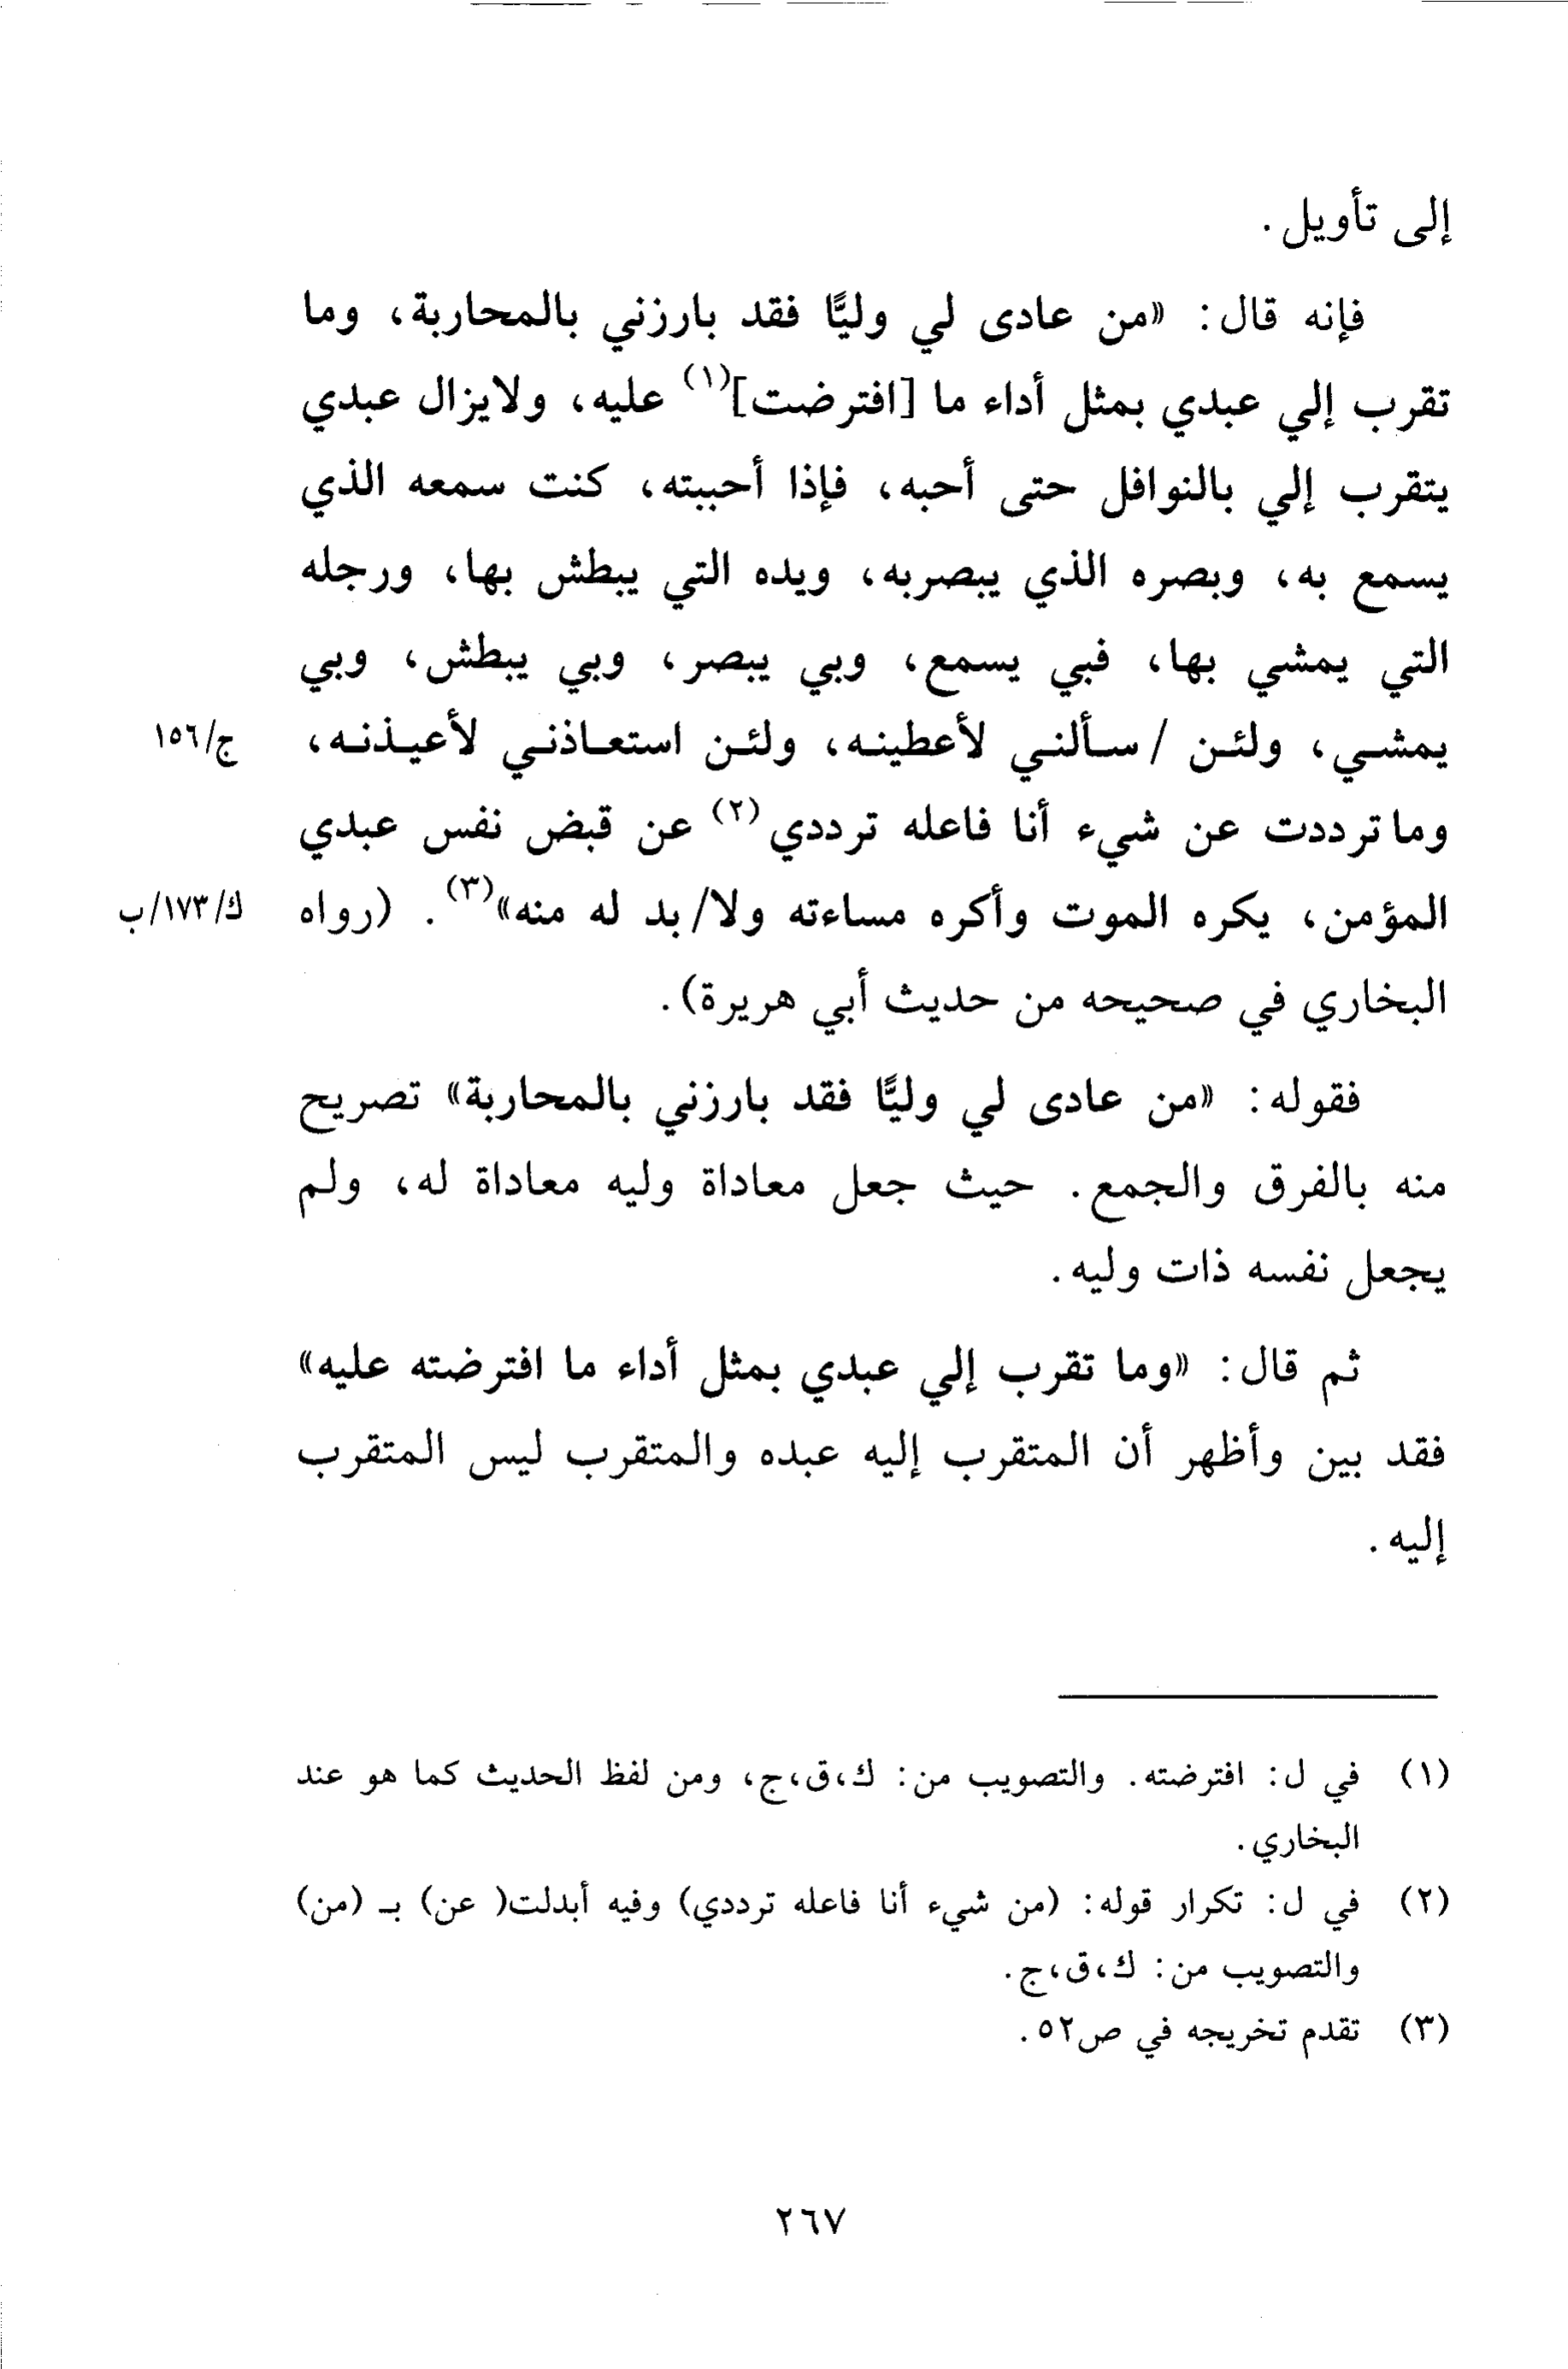 إلى تأويل.
فإنه قال: «من عادى لي وليًّا فقد بارزني بالمحاربة، وما
تقرب إلي عبدي بمثل أداء ما [افترضت](١) عليه، ولايزال عبدي
يتقرب إلي بالنوافل حتى أحبه، فإذا أحببته، كنت سمعه الذي
يسمع به، وبصره الذي يبصربه، ويده التي يبطش بها، ورجله
التي يمشي بها، فبي يسمع، وبي يبصر، وبي يبطش، وبي
يمشـي، ولئـن /سـألنـي لأعطينـه، ولئـن استعـاذنـي لأعيـذنـه، ج/١٥٦
وماترددت عن شيء أنا فاعله ترددي(٢) عن قبض نفس عبدي
المؤمن، يكره الموت وأكره مساءته ولا/بد له منه»(٣). (رواه ك/١٧٣/ب
البخاري في صحيحه من حديث أبي هريرة).
فقوله: «من عادى لي وليًّا فقد بارزني بالمحاربة» تصريح
منه بالفرق والجمع. حيث جعل معاداة وليه معاداة له، ولم
يجعل نفسه ذات وليه.
ثم قال: «وما تقرب إلي عبدي بمثل أداء ما افترضته عليه»
فقد بين وأظهر أن المتقرب إليه عبده والمتقرب ليس المتقرب
إليه.
(١) في ل: افترضته. والتصويب من: ك،ق،ج، ومن لفظ الحديث كما هو عند
البخاري.
(٢) في ل: تكرار قوله: (من شيء أنا فاعله ترددي) وفيه أبدلت( عن) بـ (من)
والتصويب من: ك،ق،ج.
(٣) تقدم تخريجه في ص٥٢.
٢٦٧